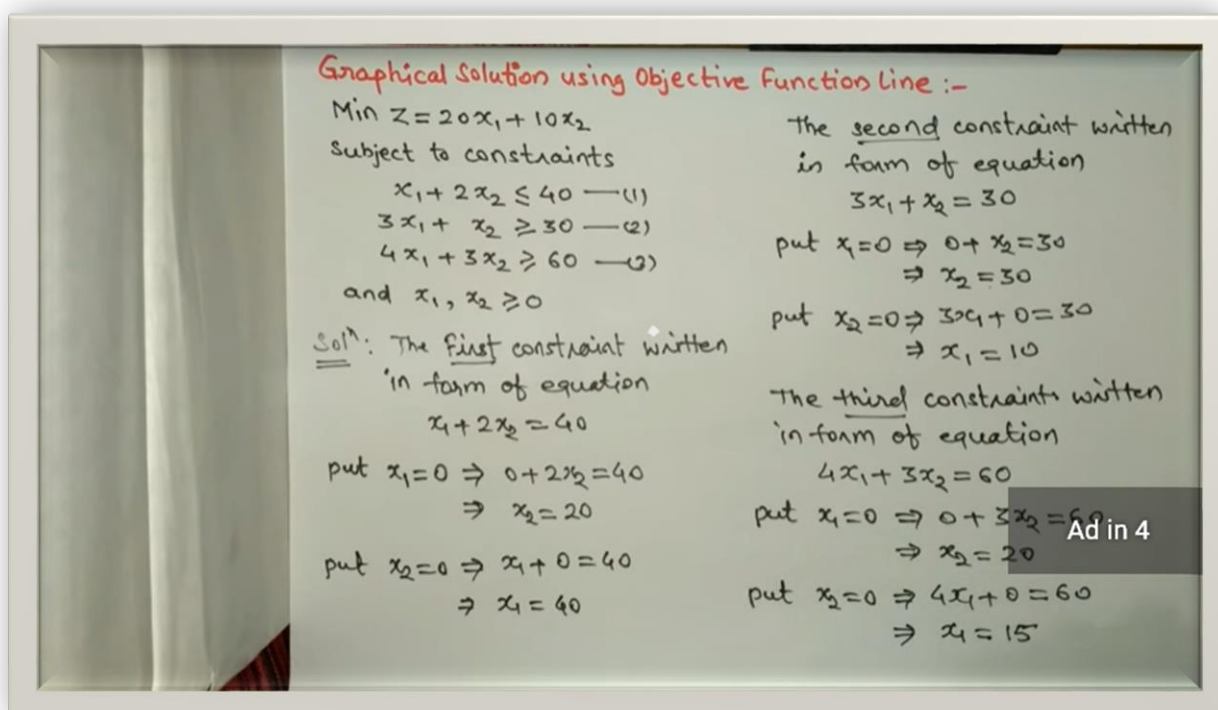 Graphical Solution using Objective Function Line :-
Min Z = 20x₁ + 10x₂
Subject to constraints
x₁ + 2x₂ ≤ 40 —(1)
3x₁ + x₂ ≥ 30 —(2)
4x₁ + 3x₂ ≥ 60 —(3)
and x₁, x₂ ≥ 0
Solⁿ: The First constraint written
in form of equation
x₁ + 2x₂ = 40
put x₁ = 0 ⇒ 0 + 2x₂ = 40
⇒ x₂ = 20
put x₂ = 0 ⇒ x₁ + 0 = 40
⇒ x₁ = 40
The second constraint written
in form of equation
3x₁ + x₂ = 30
put x₁ = 0 ⇒ 0 + x₂ = 30
⇒ x₂ = 30
put x₂ = 0 ⇒ 3x₁ + 0 = 30
⇒ x₁ = 10
The third constraints written
in form of equation
4x₁ + 3x₂ = 60
put x₁ = 0 ⇒ 0 + 3x₂ = 60
Ad in 4
⇒ x₂ = 20
put x₂ = 0 ⇒ 4x₁ + 0 = 60
⇒ x₁ = 15